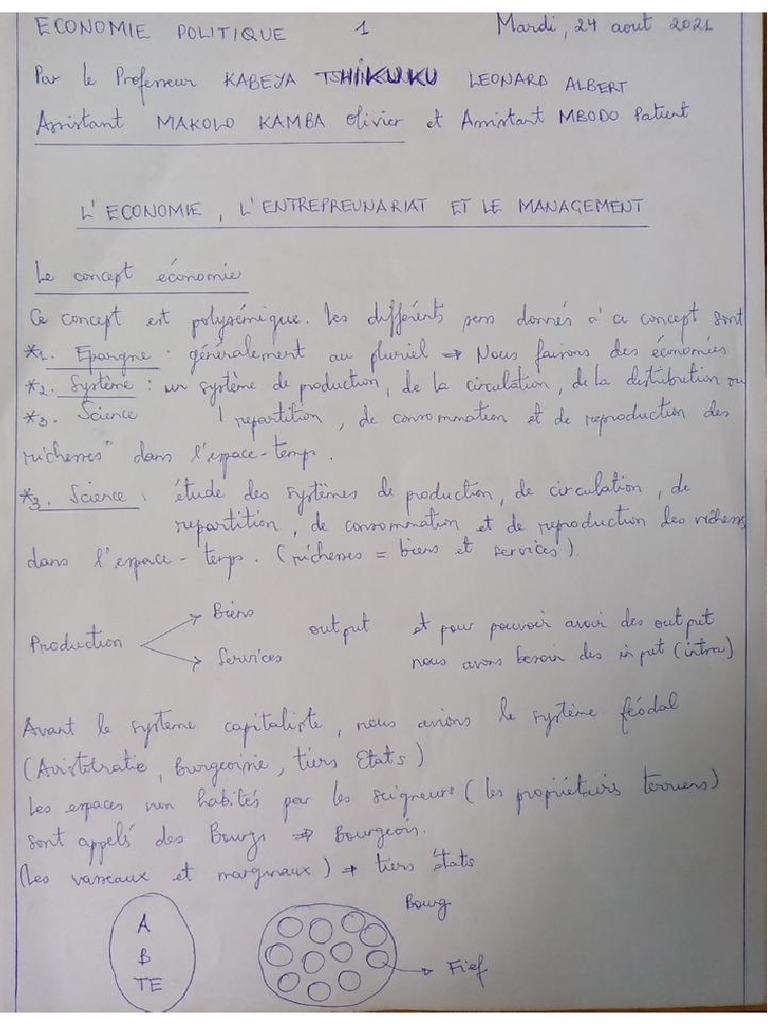 ECONOMIE POLITIQUE 1 Mardi, 24 aout 2021
Par le Professeur KABEYA TSHIKUKU LEONARD ALBERT
Assistant MAKOLO KAMBA Olivier et Assistant MBODO Patient
L'ECONOMIE, L'ENTREPREUNARIAT ET LE MANAGEMENT
Le concept économie
Ce concept est polysémique. Les différents sens donnés à ce concept sont
*1. Epargne : généralement au pluriel ⇒ Nous faisons des économies
*2. Système : un système de production, de la circulation, de la distribution ou
*3. Science | repartition, de consommation et de reproduction des
richesses" dans l'espace-temps.
*3. Science : étude des systèmes de production, de circulation, de
repartition, de consommation et de reproduction des richesses
dans l'espace-temps. (richesses = biens et services)
Biens
Production output et pour pouvoir avoir des output
Services nous avons besoin des in put (intra)
Avant le systeme capitaliste, nous avions le système féodal
(Aristocratie, Bourgeoisie, tiers Etats)
Les espaces non habités par les seigneurs (les propriétaires terriens)
sont appelés des Bourgs ⇒ Bourgeois.
(Les vasseaux et marginaux) → tiers états
Bourg
A
B
TE
Fief